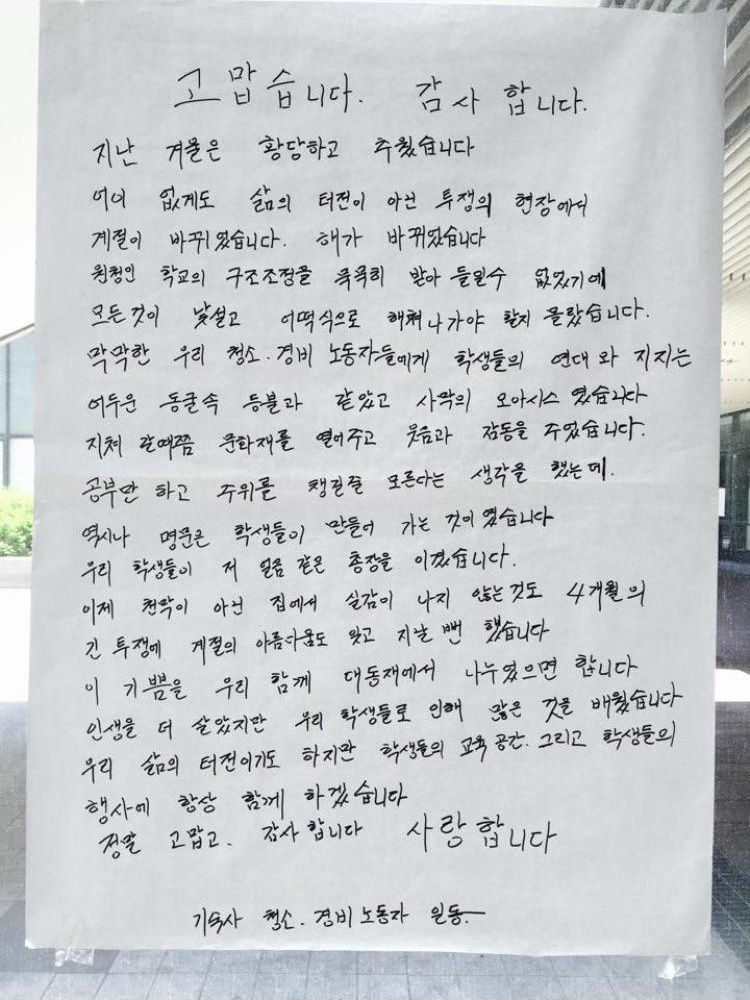 고맙습니다. 감사합니다.
지난 겨울은 황당하고 추웠습니다
어이 없게도 삶의 터전이 아닌 투쟁의 현장에서
계절이 바뀌었습니다. 해가 바뀌었습니다
원청인 학교의 구조조정을 묵묵히 받아 들일수 없었기에
모든것이 낯설고 어떡식으로 해쳐나가야 할지 몰랐습니다.
막막한 우리 청소·경비 노동자들에게 학생들의 연대와 지지는
어두운 동굴속 등불과 같았고 사막의 오아시스 였습니다
지쳐 갈때쯤 문화재를 열어주고 웃음과 감동을 주었습니다.
공부만 하고 주위를 챙길줄 모른다는 생각을 했는데.
역시나 명문은 학생들이 만들어 가는 것이였습니다
우리 학생들이 저 얼음 같은 총장을 이겼습니다.
이제 천막이 아닌 집에서 실감이 나지 않는것도 4개월의
긴 투쟁에 계절의 아름다움도 잊고 지날 뻔 했습니다
이 기쁨을 우리 함께 대동재에서 나누였으면 합니다
인생을 더 살았지만 우리 학생들로 인해 많은 것을 배웠습니다
우리 삶의 터전이기도 하지만 학생들의 교육 공간. 그리고 학생들의
행사에 항상 함께 하겠습니다
정말 고맙고. 감사합니다 사랑합니다
기숙사 청소·경비노동자 일동.